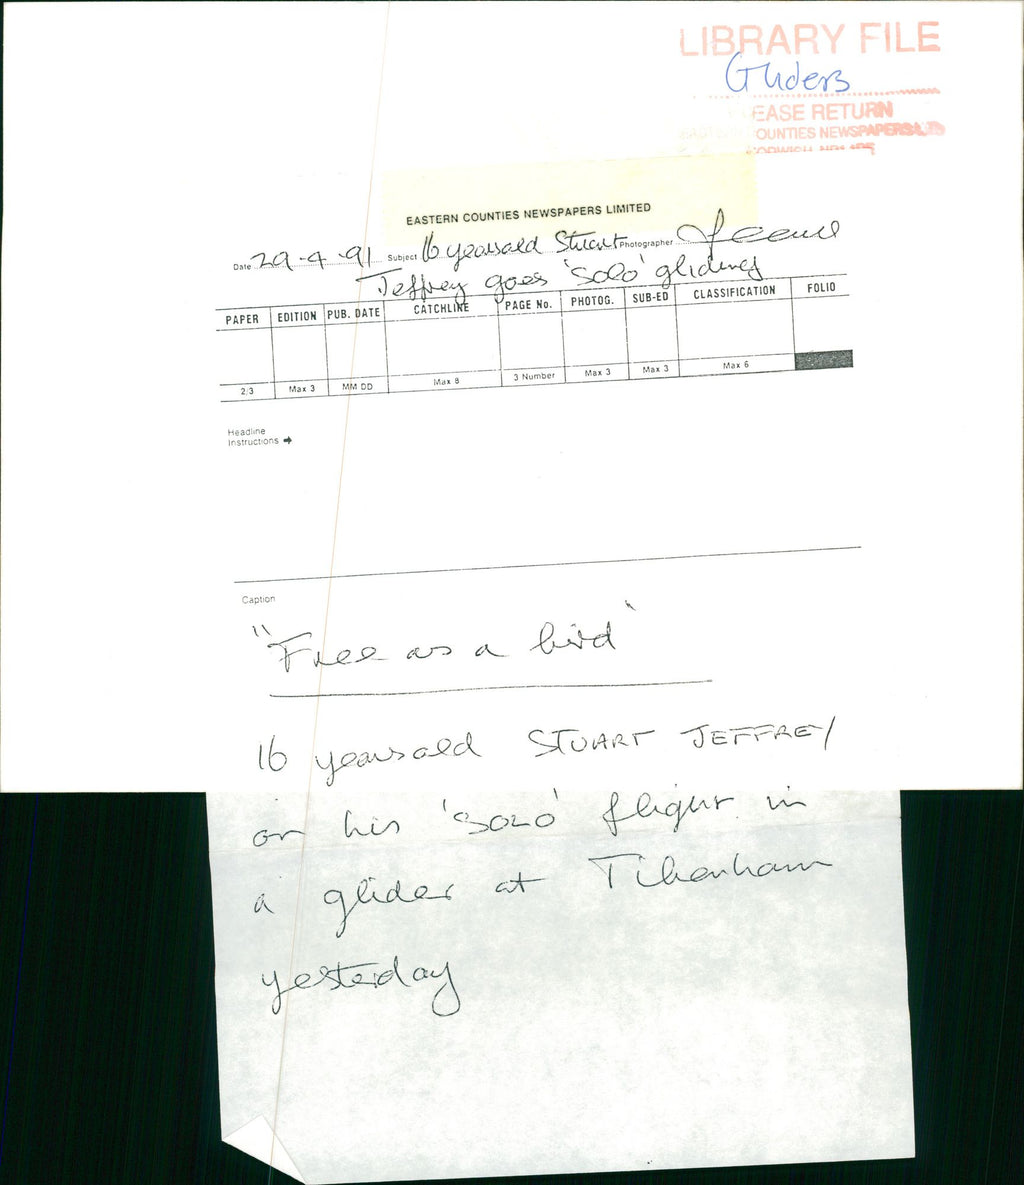 LIBRARY FILE
Gliders
EASE RETURN
OUNTIES NEWSPAPERS LTD
EASTERN COUNTIES NEWSPAPERS LIMITED
Date 29-4-91 Subject 16 years old Stuart Photographer
Jeffrey goes 'Solo' gliding
PAPER EDITION PUB. DATE CATCHLINE PAGE No. PHOTOG. SUB-ED CLASSIFICATION FOLIO
2/3 Max 3 MM DD Max 8 3 Number Max 3 Max 3 Max 6
Headline
Instructions
Caption
"Free as a bird"
16 years old STUART JEFFREY
on his 'SOLO' flight in
a glider at Tibenham
yesterday